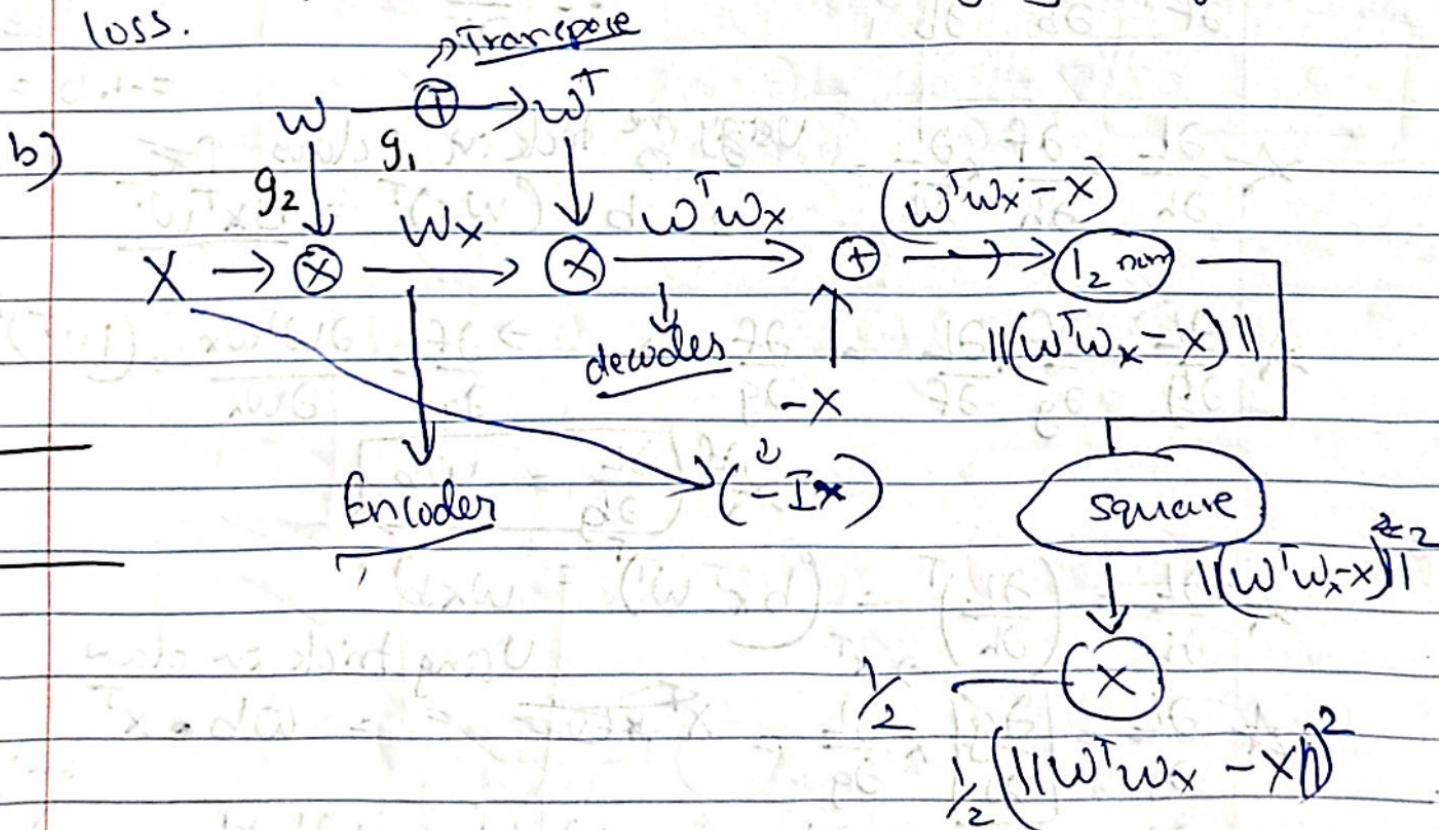 loss.
Transpose
W T Wᵀ
b)
g₁
g₂
Wx WᵀWx (WᵀWx - x)
X × × + l₂ norm
decoder ||(WᵀWx - x)||
-x
Encoder (-Ix)
square
||(WᵀWx-x)||²
1/2 ×
1/2 (||WᵀWx - x||)²